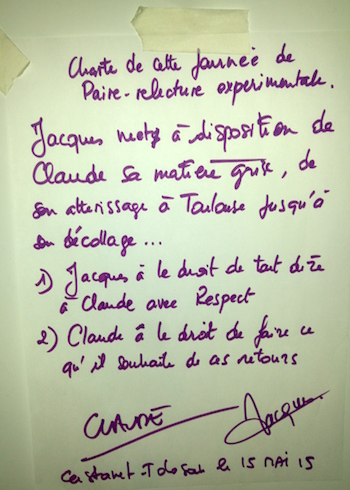 Charte de cette Journée de
Paire-relecture expérimentale.
Jacques met à disposition de
Claude sa matière grise, de
son atterissage à Toulouse jusqu'à
son décollage ...
1) Jacques à le droit de tout dire
à Claude avec Respect
2) Claude à le droit de faire ce
qu'il souhaite de ces retours
CLAUDE Jacques.
le 15 MAI 15